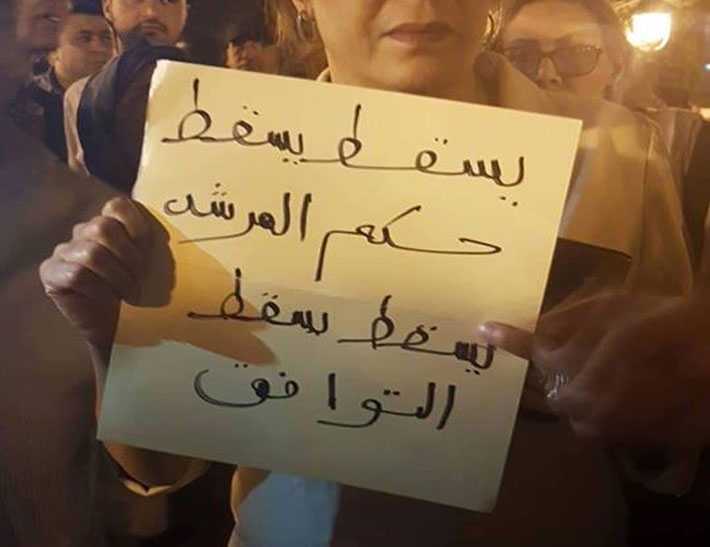 يسقط يسقط
حكم المرشد
يسقط يسقط
التوافق